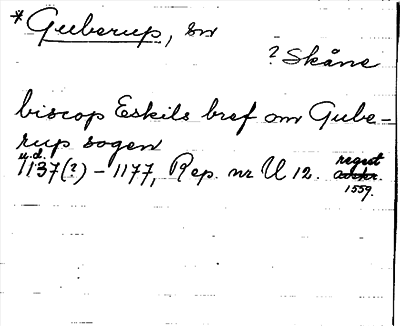 *Guberup, sn
? Skåne
biscop Eskils bref om Gube-
rup sogen
u.d.
1137(?) - 1177, Rep. nr U 12. regest
avskr.
1559.